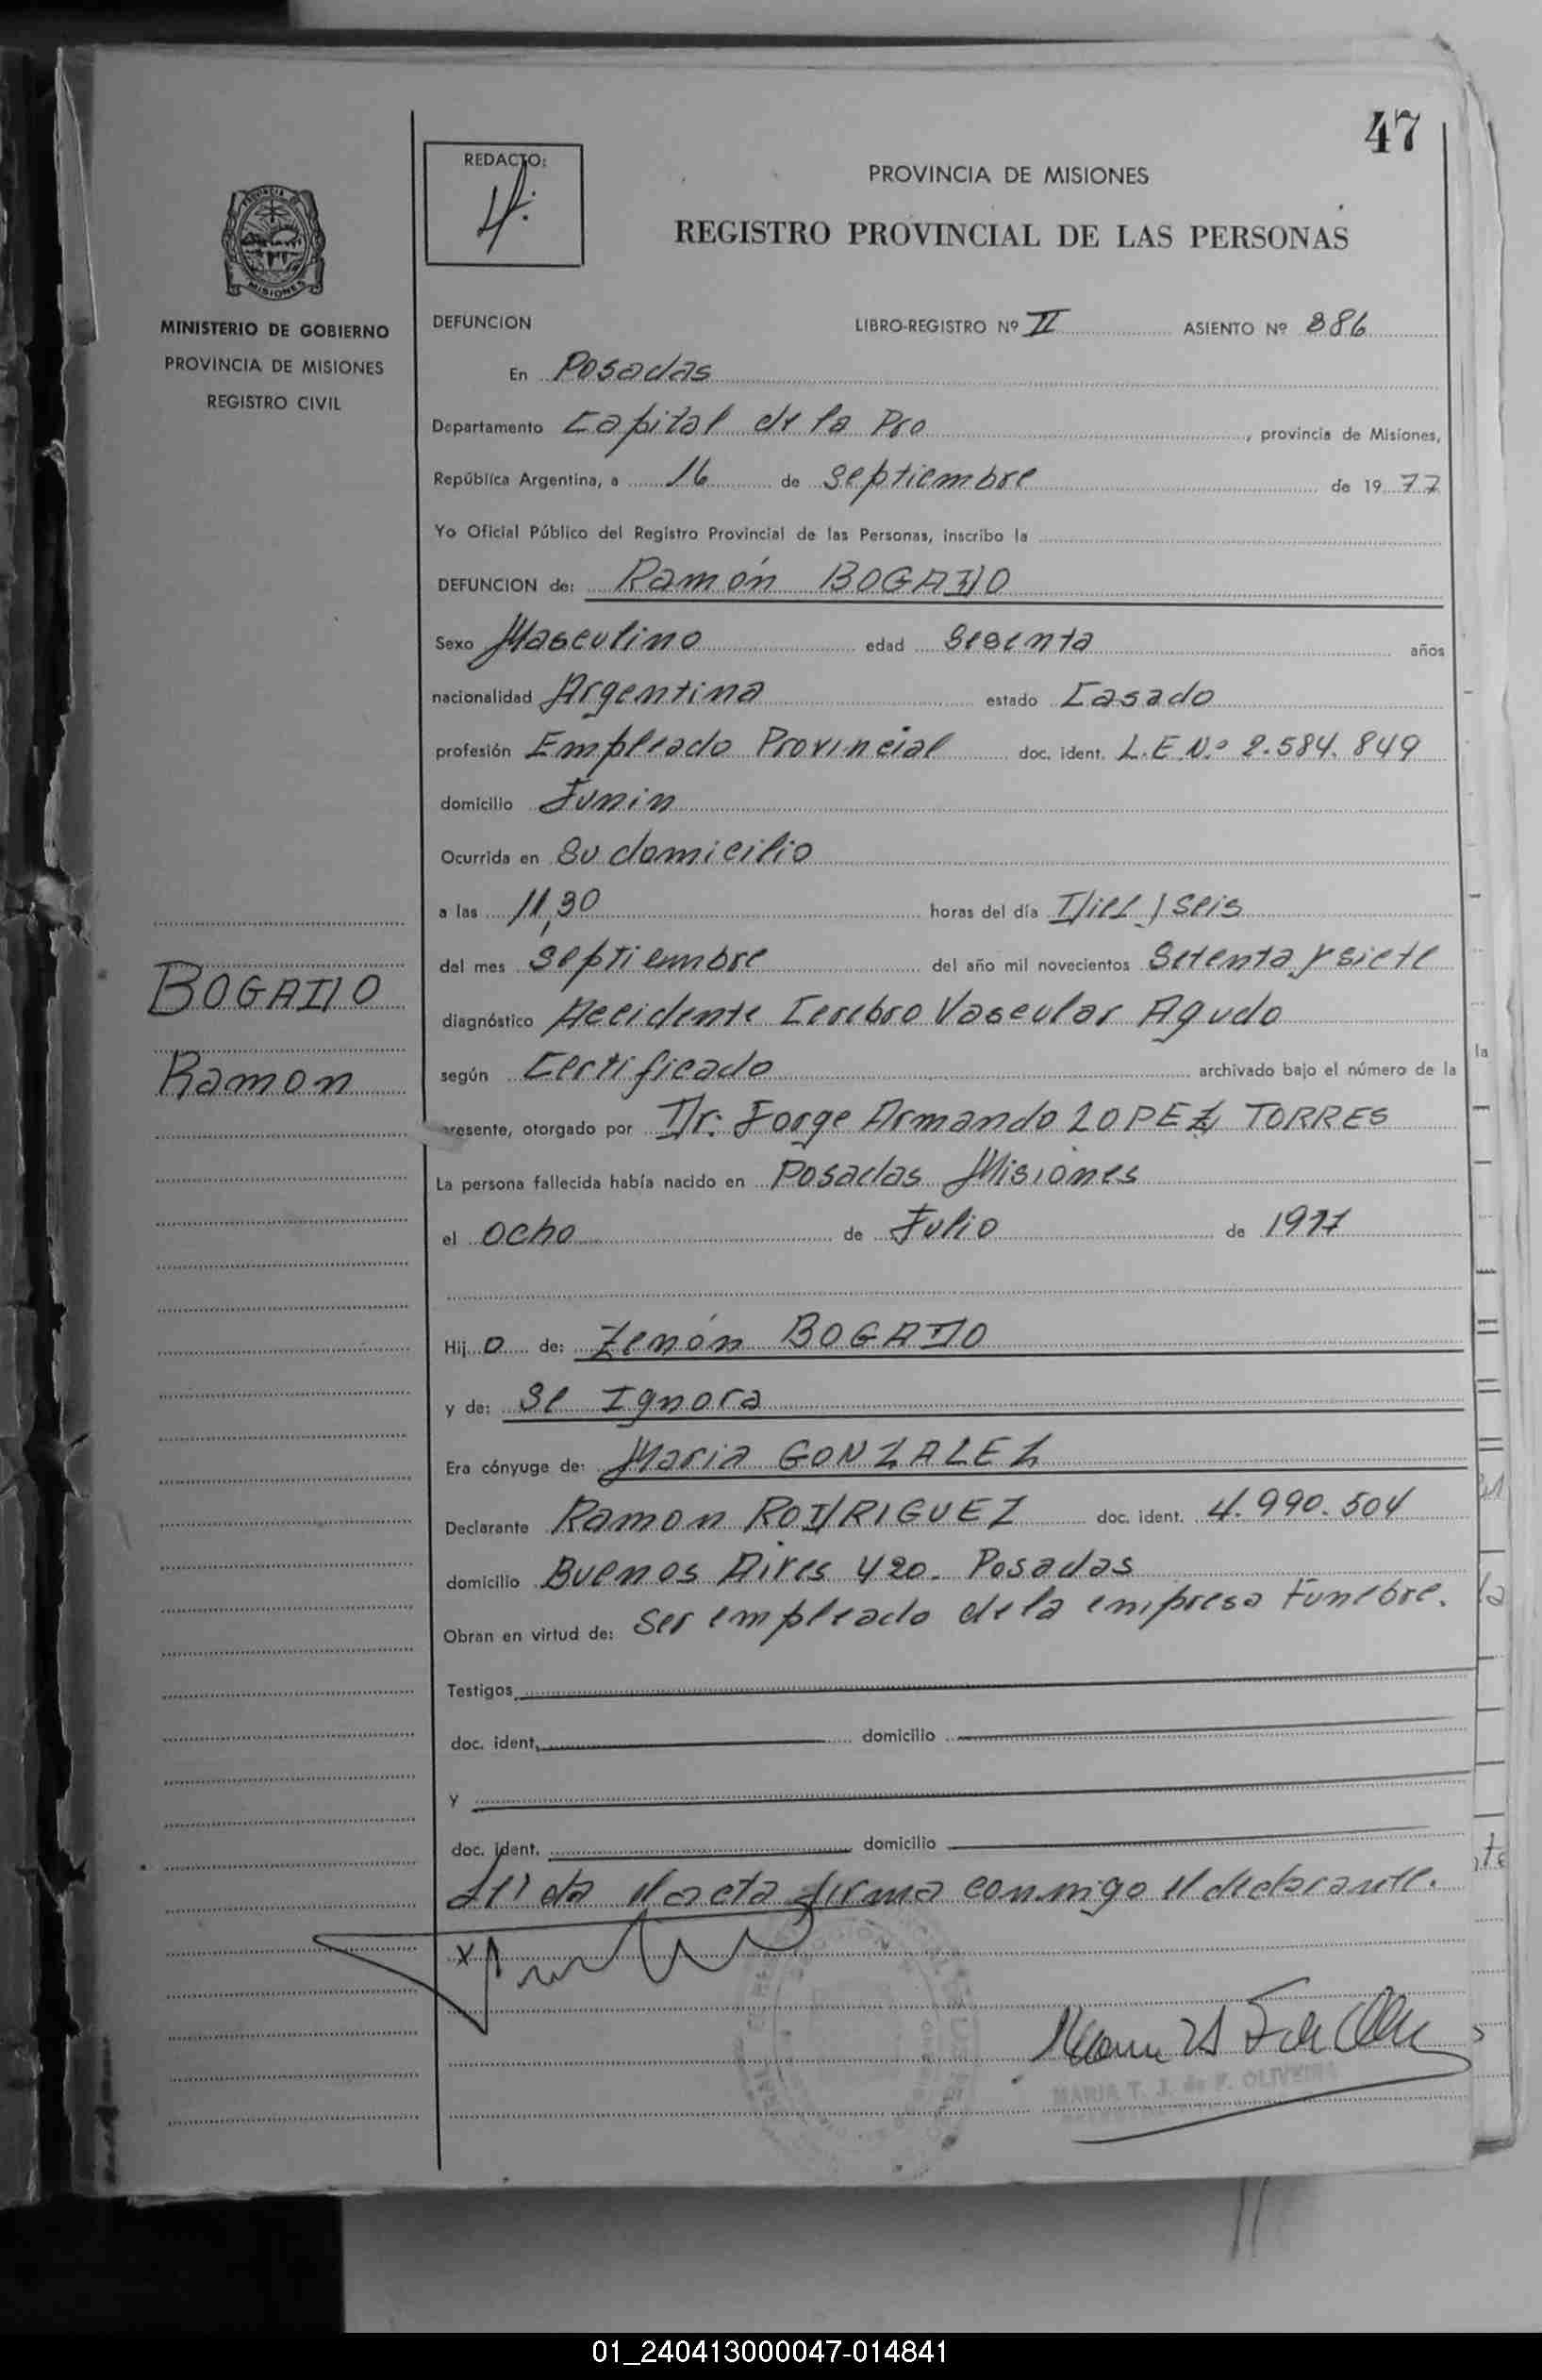 47
REDACTO:
PROVINCIA DE MISIONES
REGISTRO PROVINCIAL DE LAS PERSONAS
PROVINCIA
MISIONES
MINISTERIO DE GOBIERNO
PROVINCIA DE MISIONES
REGISTRO CIVIL
DEFUNCION LIBRO-REGISTRO Nº II ASIENTO Nº 886
En Posadas
Departamento Capital de la Pro, provincia de Misiones,
República Argentina, a 16 de septiembre de 1977
Yo Oficial Público del Registro Provincial de las Personas, inscribo la
DEFUNCION de: Ramón BOGADO
Sexo Masculino edad Sesenta años
nacionalidad Argentina estado Casado
profesión Empleado Provincial doc. ident. L.E.Nº 2.584.849
domicilio Junin
Ocurrida en Su domicilio
a las 11,30 horas del día Dieciseis
del mes septiembre del año mil novecientos Setenta y siete
BOGADO
Ramon
diagnóstico Accidente Cerebro Vascular Agudo
según Certificado archivado bajo el número de la
presente, otorgado por Dr. Jorge Armando LOPEZ TORRES
La persona fallecida había nacido en Posadas Misiones
el ocho de Julio de 1917
Hijo de: Zenón BOGADO
y de: Se Ignora
Era cónyuge de: Maria GONZALEZ
Declarante Ramon RODRIGUEZ doc. ident. 4.990.504
domicilio Buenos Aires 420. Posadas
Obran en virtud de: Ser empleado de la empresa Funebre.
Testigos
doc. ident. domicilio
y
doc. ident. domicilio
Leida el acta firma conmigo el declarante.
x
MARIA T. J. de F. OLIVEIRA
01_240413000047-014841